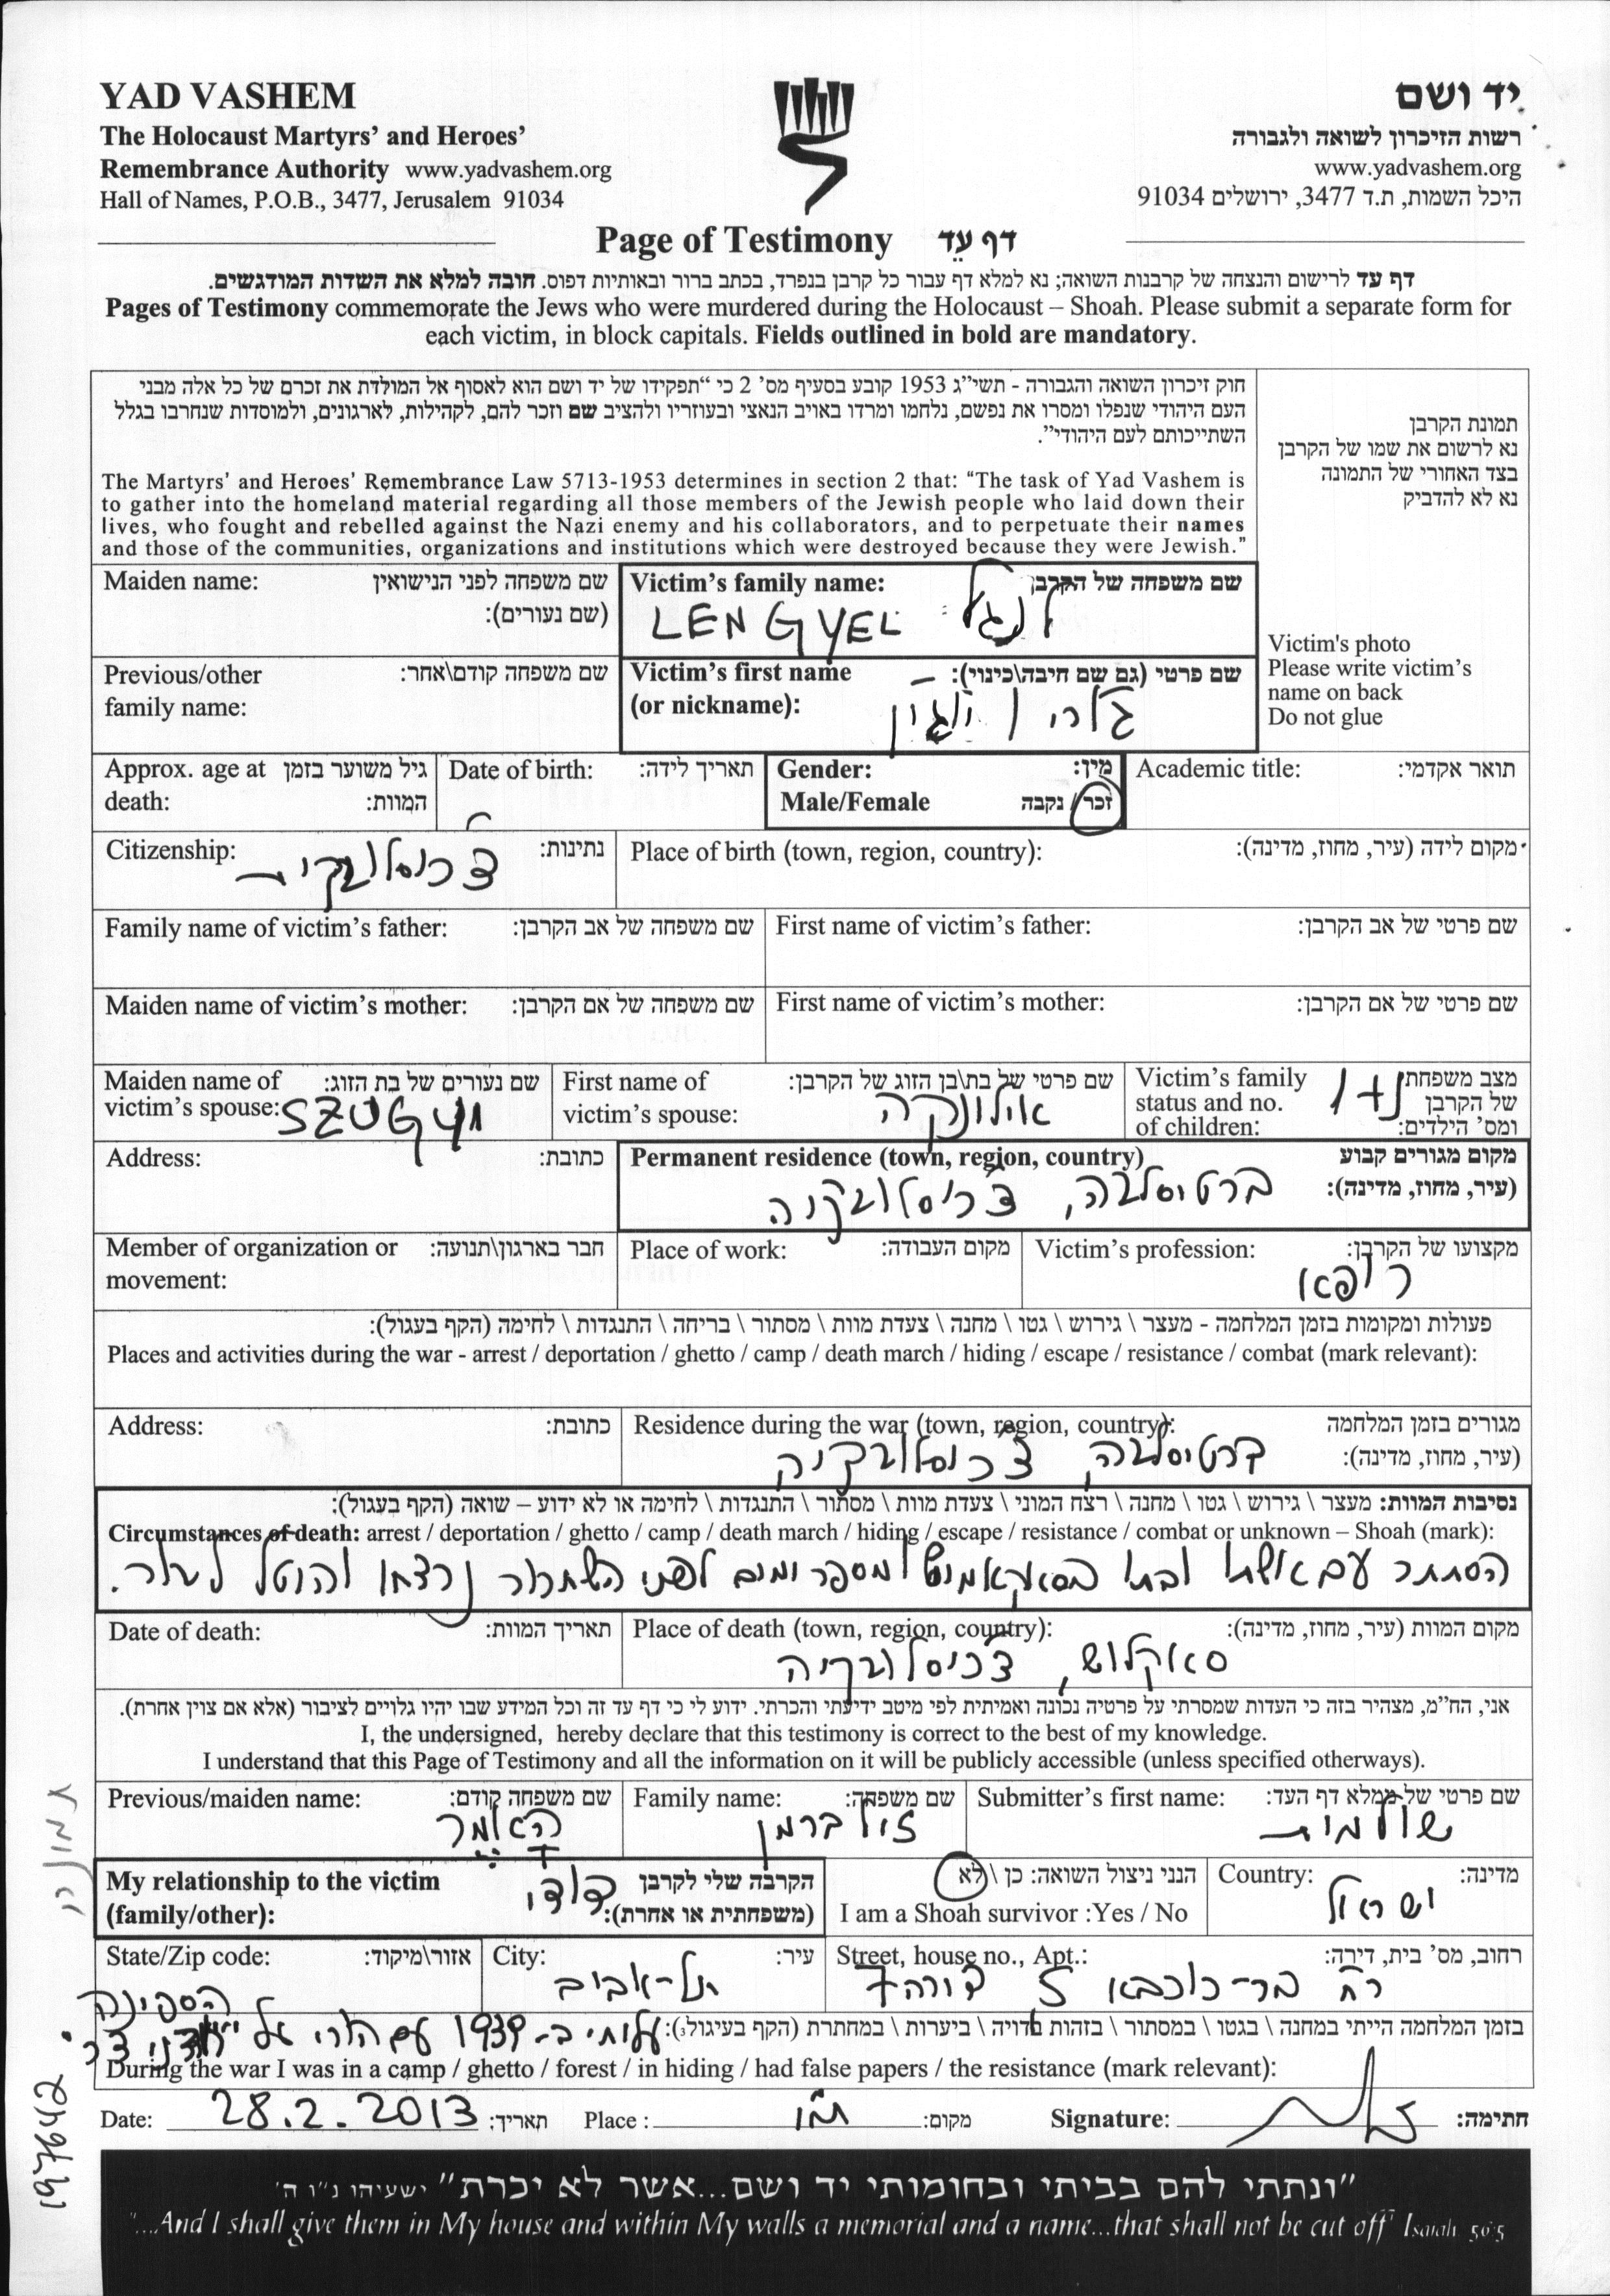 YAD VASHEM
יד ושם
The Holocaust Martyrs’ and Heroes’
רשות הזיכרון לשואה ולגבורה
Remembrance Authority www.yadvashem.org
www.yadvashem.org
Hall of Names, P.O.B., 3477, Jerusalem 91034
היכל השמות, ת.ד 3477, ירושלים 91034
Page of Testimony דף עֵד
דף עד לרישום והנצחה של קרבנות השואה; נא למלא דף עבור כל קרבן בנפרד, בכתב ברור ובאותיות דפוס. חובה למלא את השדות המודגשים.
Pages of Testimony commemorate the Jews who were murdered during the Holocaust – Shoah. Please submit a separate form for
each victim, in block capitals. Fields outlined in bold are mandatory.
חוק זיכרון השואה והגבורה - תשי״ג 1953 קובע בסעיף מס׳ 2 כי “תפקידו של יד ושם הוא לאסוף אל המולדת את זכרם של כל אלה מבני
העם היהודי שנפלו ומסרו את נפשם, נלחמו ומרדו באויב הנאצי ובעוזריו ולהציב שם וזכר להם, לקהילות, לארגונים, ולמוסדות שנחרבו בגלל
השתייכותם לעם היהודי”.
The Martyrs’ and Heroes’ Remembrance Law 5713-1953 determines in section 2 that: “The task of Yad Vashem is
to gather into the homeland material regarding all those members of the Jewish people who laid down their
lives, who fought and rebelled against the Nazi enemy and his collaborators, and to perpetuate their names
and those of the communities, organizations and institutions which were destroyed because they were Jewish.”
תמונת הקרבן
נא לרשום את שמו של הקרבן
בצד האחורי של התמונה
נא לא להדביק
Victim's photo
Please write victim’s
name on back
Do not glue
Maiden name: שם משפחה לפני הנישואין
(שם נעורים):
Victim’s family name: שם משפחה של הקרבן
LENGYEL לנגל
Previous/other שם משפחה קודם\אחר:
family name:
Victim’s first name שם פרטי (גם שם חיבה\כינוי):
(or nickname):
Approx. age at גיל משוער בזמן
death: המוות:
Date of birth: תאריך לידה:
Gender: מין:
Male/Female זכר / נקבה
Academic title: תואר אקדמי:
Citizenship: נתינות:
צ'כוסלובקית
Place of birth (town, region, country): מקום לידה (עיר, מחוז, מדינה):
Family name of victim’s father: שם משפחה של אב הקרבן:
First name of victim’s father: שם פרטי של אב הקרבן:
Maiden name of victim’s mother: שם משפחה של אם הקרבן:
First name of victim’s mother: שם פרטי של אם הקרבן:
Maiden name of שם נעורים של בת הזוג:
victim’s spouse:
First name of שם פרטי של בת\בן הזוג של הקרבן:
victim’s spouse: אילונקה
Victim’s family מצב משפחתי
status and no. של הקרבן
of children: ומס׳ הילדים:
Address: כתובת:
Permanent residence (town, region, country) מקום מגורים קבוע
(עיר, מחוז, מדינה):
ברטיסלבה, צ'כוסלובקיה
Member of organization or חבר בארגון\תנועה:
movement:
Place of work: מקום העבודה:
Victim’s profession: מקצועו של הקרבן:
רופא
פעולות ומקומות בזמן המלחמה - מעצר \ גירוש \ גטו \ מחנה \ צעדת מוות \ מסתור \ בריחה \ התנגדות \ לחימה (הקף בעגול):
Places and activities during the war - arrest / deportation / ghetto / camp / death march / hiding / escape / resistance / combat (mark relevant):
Address: כתובת:
Residence during the war (town, region, country): מגורים בזמן המלחמה
(עיר, מחוז, מדינה):
ברטיסלבה צ'כוסלובקיה
נסיבות המוות: מעצר \ גירוש \ גטו \ מחנה \ רצח המוני \ צעדת מוות \ מסתור \ התנגדות \ לחימה או לא ידוע – שואה (הקף בעגול):
Circumstances of death: arrest / deportation / ghetto / camp / death march / hiding / escape / resistance / combat or unknown – Shoah (mark):
הסתתר עם אשתו ובתו ומספר ימים לפני השחרור נרצחו והוטל
Date of death: תאריך המוות:
Place of death (town, region, country): מקום המוות (עיר, מחוז, מדינה):
סאקלוש, צ'כוסלובקיה
אני, הח״מ, מצהיר בזה כי העדות שמסרתי על פרטיה נכונה ואמיתית לפי מיטב ידיעתי והכרתי. ידוע לי כי דף עד זה וכל המידע שבו יהיו גלויים לציבור (אלא אם צוין אחרת).
I, the undersigned, hereby declare that this testimony is correct to the best of my knowledge.
I understand that this Page of Testimony and all the information on it will be publicly accessible (unless specified otherways).
Previous/maiden name: שם משפחה קודם:
Family name: שם משפחה:
זילברמן
Submitter’s first name: שם פרטי של ממלא דף העד:
שולמית
My relationship to the victim הקרבה שלי לקרבן
(family/other): (משפחתית או אחרת):
דודי
הנני ניצול השואה: כן \ לא
I am a Shoah survivor :Yes / No
Country: מדינה:
ישראל
State/Zip code: אזור\מיקוד:
City: עיר:
תל-אביב
Street, house no., Apt.: רחוב, מס׳ בית, דירה:
רח' בר-כוכבא 5 דירה 7
הספינה
בזמן המלחמה הייתי במחנה \ בגטו \ במסתור \ בזהות בדויה \ ביערות \ במחתרת (הקף בעיגול):
עליתי ב-1939 עם הורי על
During the war I was in a camp / ghetto / forest / in hiding / had false papers / the resistance (mark relevant):
Date: 28.2.2013 תאריך:
Place : ת"א מקום:
Signature: חתימה:
197642
”ונתתי להם בביתי ובחומותי יד ושם...אשר לא יכרת“ ישעיהו נ״ו ה׳
“...And I shall give them in My house and within My walls a memorial and a name...that shall not be cut off” Isaiah 56:5